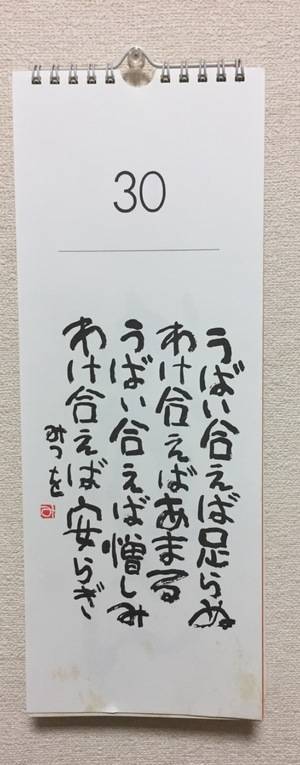 30
うばい合えば足らぬ
わけ合えばあまる
うばい合えば憎しみ
わけ合えば安らぎ
みつを